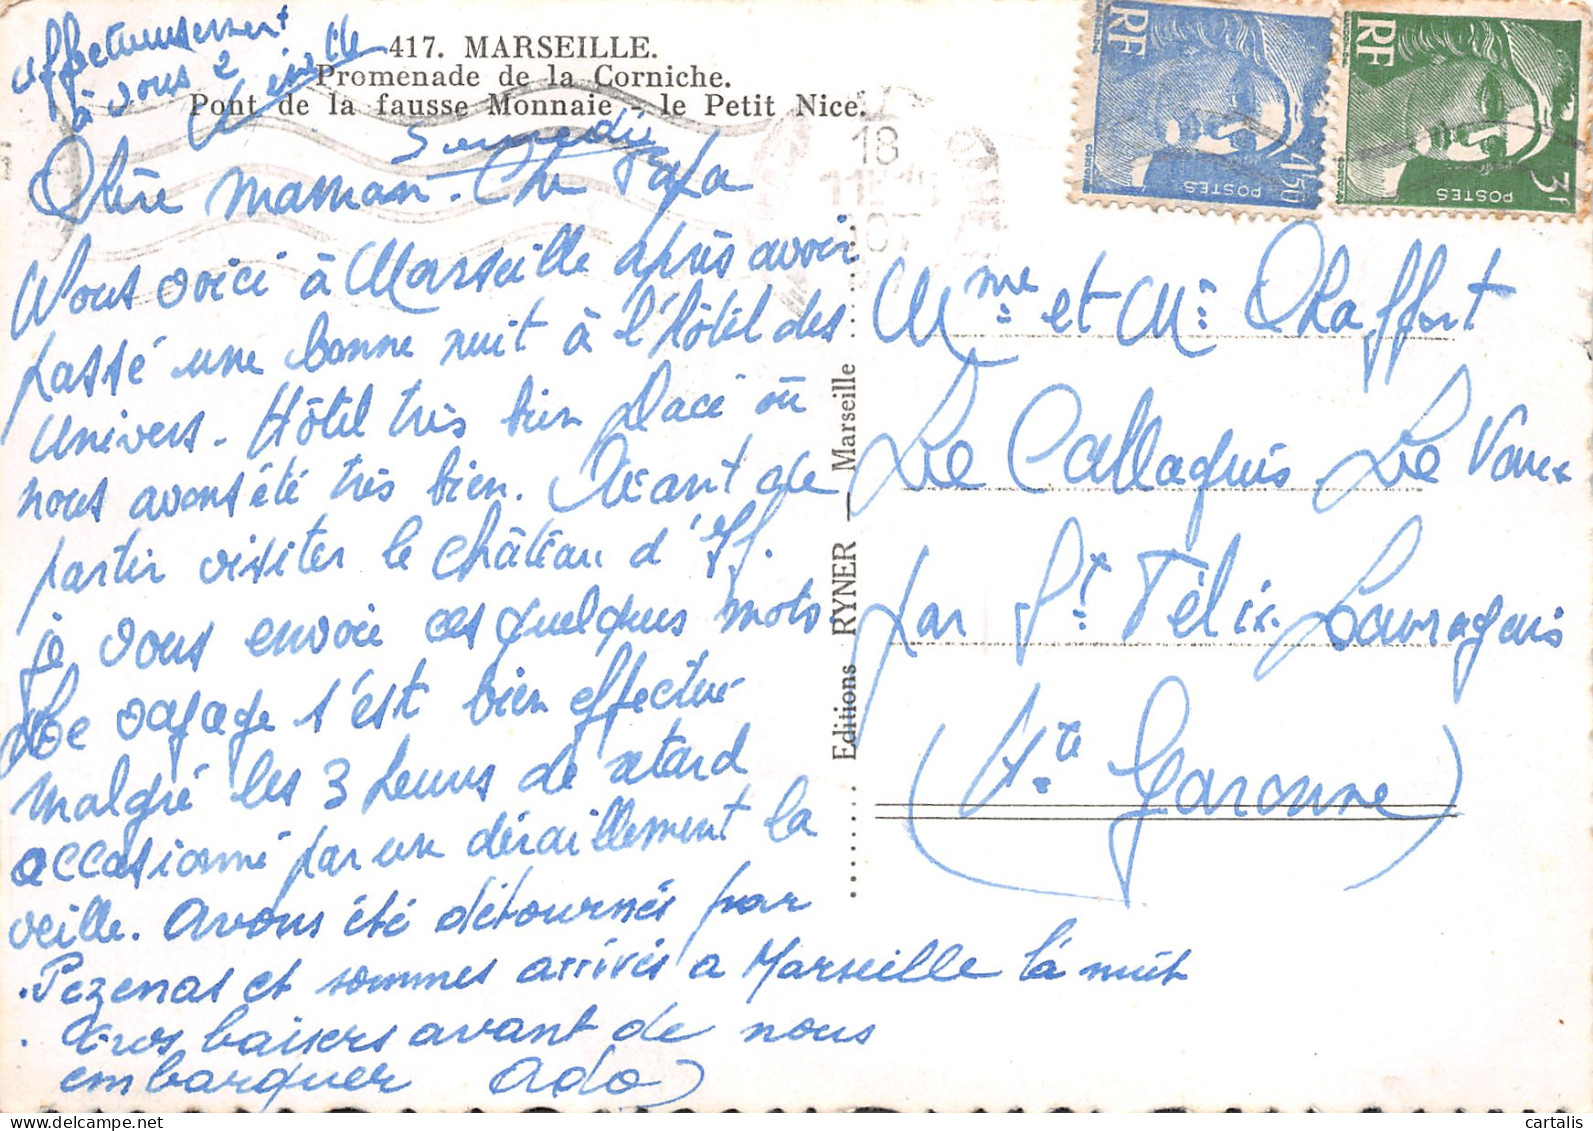 affectueusement
à vous 2
417. MARSEILLE.
Promenade de la Corniche.
Pont de la fausse Monnaie - le Petit Nice.
Samedi
Chère maman. Cher Papa
Nous voici à Marseille après avoir
passé une bonne nuit à l'hôtel des
Univers. Hôtel très bien placé où
nous avons été très bien. Avant de
partir visiter le château d'If.
je vous envoie ces quelques mots
Le voyage s'est bien effectué
malgré les 3 heures de retard
occasionné par un déraillement la
veille. Avons été détournés par
Pezenas et sommes arrivés a Marseille la nuit
Gros baisers avant de nous
embarquer Ado
Editions RYNER — Marseille
RF
POSTES
4F50
RF
POSTES
3F
18
Mme et Mr Chaffort
Le Callaguis Le Vaux
par St Félix Lauraguais
(Hte Garonne)
cartalis